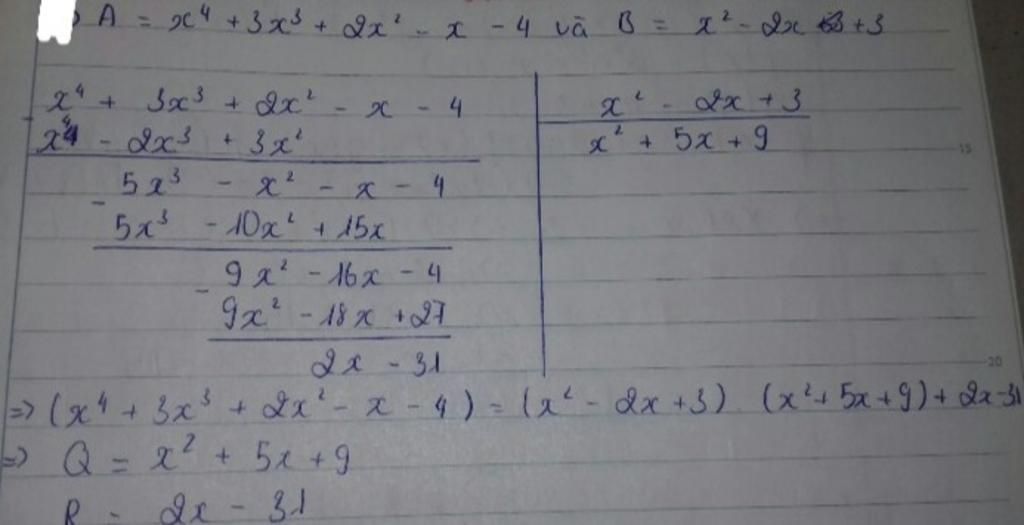 A = x⁴ + 3x³ + 2x² - x - 4 và B = x² - 2x + 3
x⁴ + 3x³ + 2x² - x - 4
x² - 2x + 3
- x⁴ - 2x³ + 3x²
x² + 5x + 9
15
5x³ - x² - x - 4
- 5x³ - 10x² + 15x
9x² - 16x - 4
- 9x² - 18x + 27
2x - 31
20
=> (x⁴ + 3x³ + 2x² - x - 4) = (x² - 2x + 3) . (x² + 5x + 9) + 2x - 31
=> Q = x² + 5x + 9
R = 2x - 31